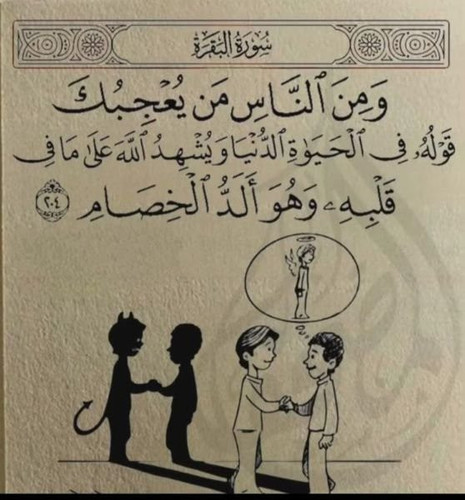 سُورَةُ البَقَرَةِ
وَمِنَ ٱلنَّاسِ مَن يُعۡجِبُكَ
قَوۡلُهُۥ فِي ٱلۡحَيَوٰةِ ٱلدُّنۡيَا وَيُشۡهِدُ ٱللَّهَ عَلَىٰ مَا فِي
قَلۡبِهِۦ وَهُوَ أَلَدُّ ٱلۡخِصَامِ ٢٠٤